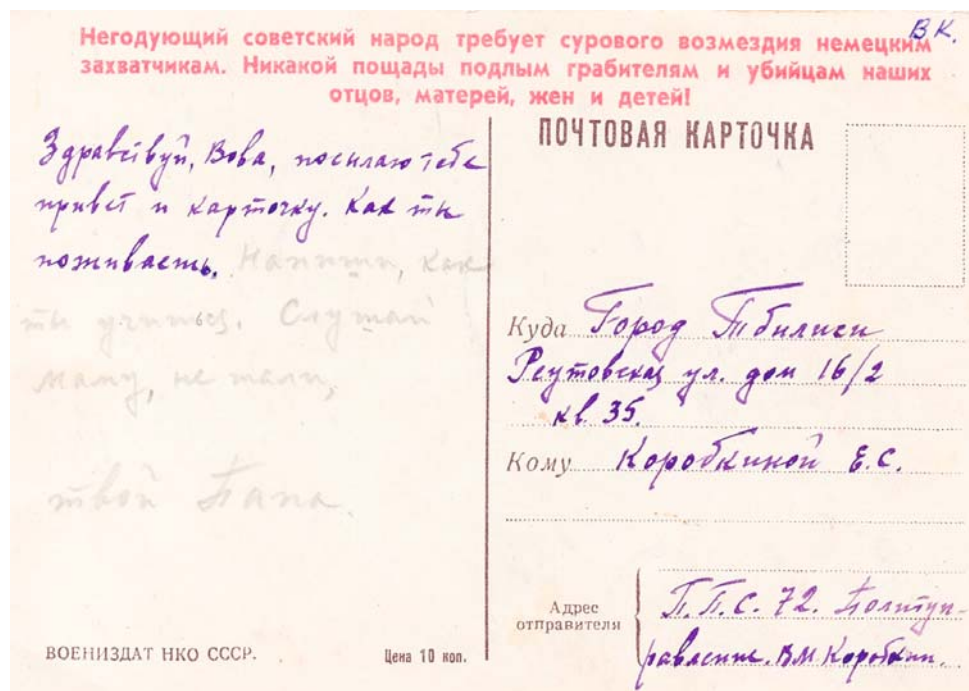 В К.
Негодующий советский народ требует сурового возмездия немецким
захватчикам. Никакой пощады подлым грабителям и убийцам наших
отцов, матерей, жен и детей!
ПОЧТОВАЯ КАРТОЧКА
Здравствуй, Вова, посылаю тебе
привет и карточку. Как ты
поживаешь. Напиши, как
ты учишься. Слушай
маму, не шали,
твой Папа.
Куда Город Тбилиси
Реутовская ул. дом 16/2
кв 35.
Кому Коробкиной Е.С.
Адрес
отправителя
П.П.С. 72. Политуп-
равление. ВМ Коробкин.
ВОЕНИЗДАТ НКО СССР.
Цена 10 коп.